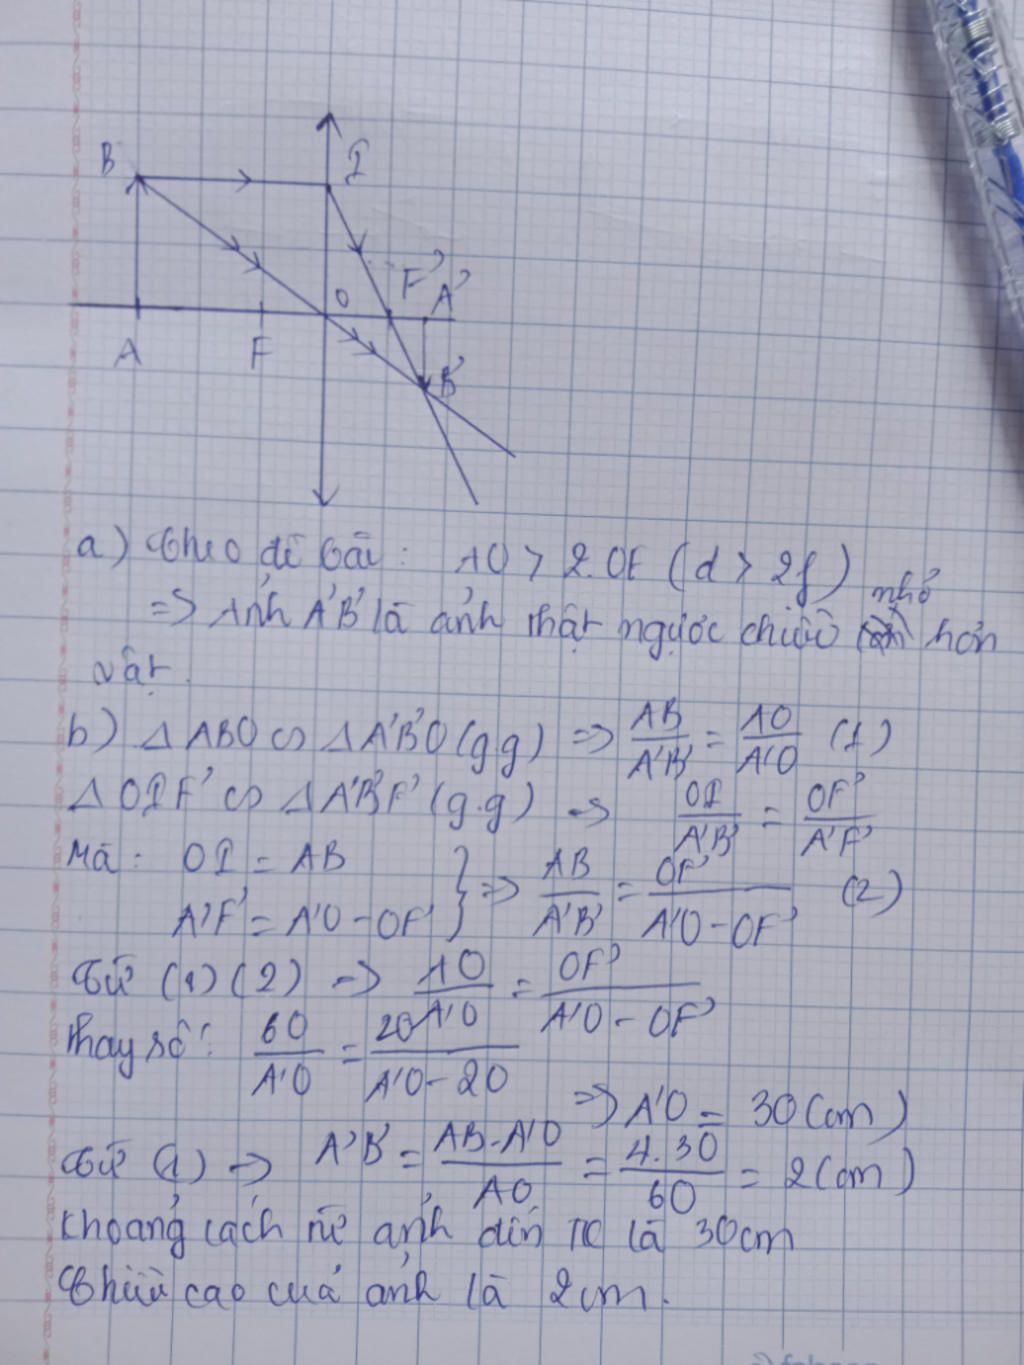 B
I
O
F'
A'
A
F
B'
a) Theo đề bài: AO > 2.OF (d > 2f)
nhỏ
=> Ảnh A'B' là ảnh thật ngược chiều hơn
vật.
b) Δ ABO ∽ Δ A'B'O (g.g) => AB/A'B' = AO/A'O (1)
Δ OIF' ∽ Δ A'B'F' (g.g) -> OI/A'B' = OF'/A'F'
Mà: OI = AB
A'F' = A'O - OF' } => AB/A'B' = OF'/A'O - OF' (2)
Từ (1) (2) -> AO/A'O = OF'/A'O - OF'
Thay số: 60/A'O = 20/A'O - 20
=> A'O = 30 (cm)
Từ (1) -> A'B' = AB.A'O/AO = 4.30/60 = 2 (cm)
Khoảng cách từ ảnh đến TK là 30cm
Chiều cao của ảnh là 2cm.